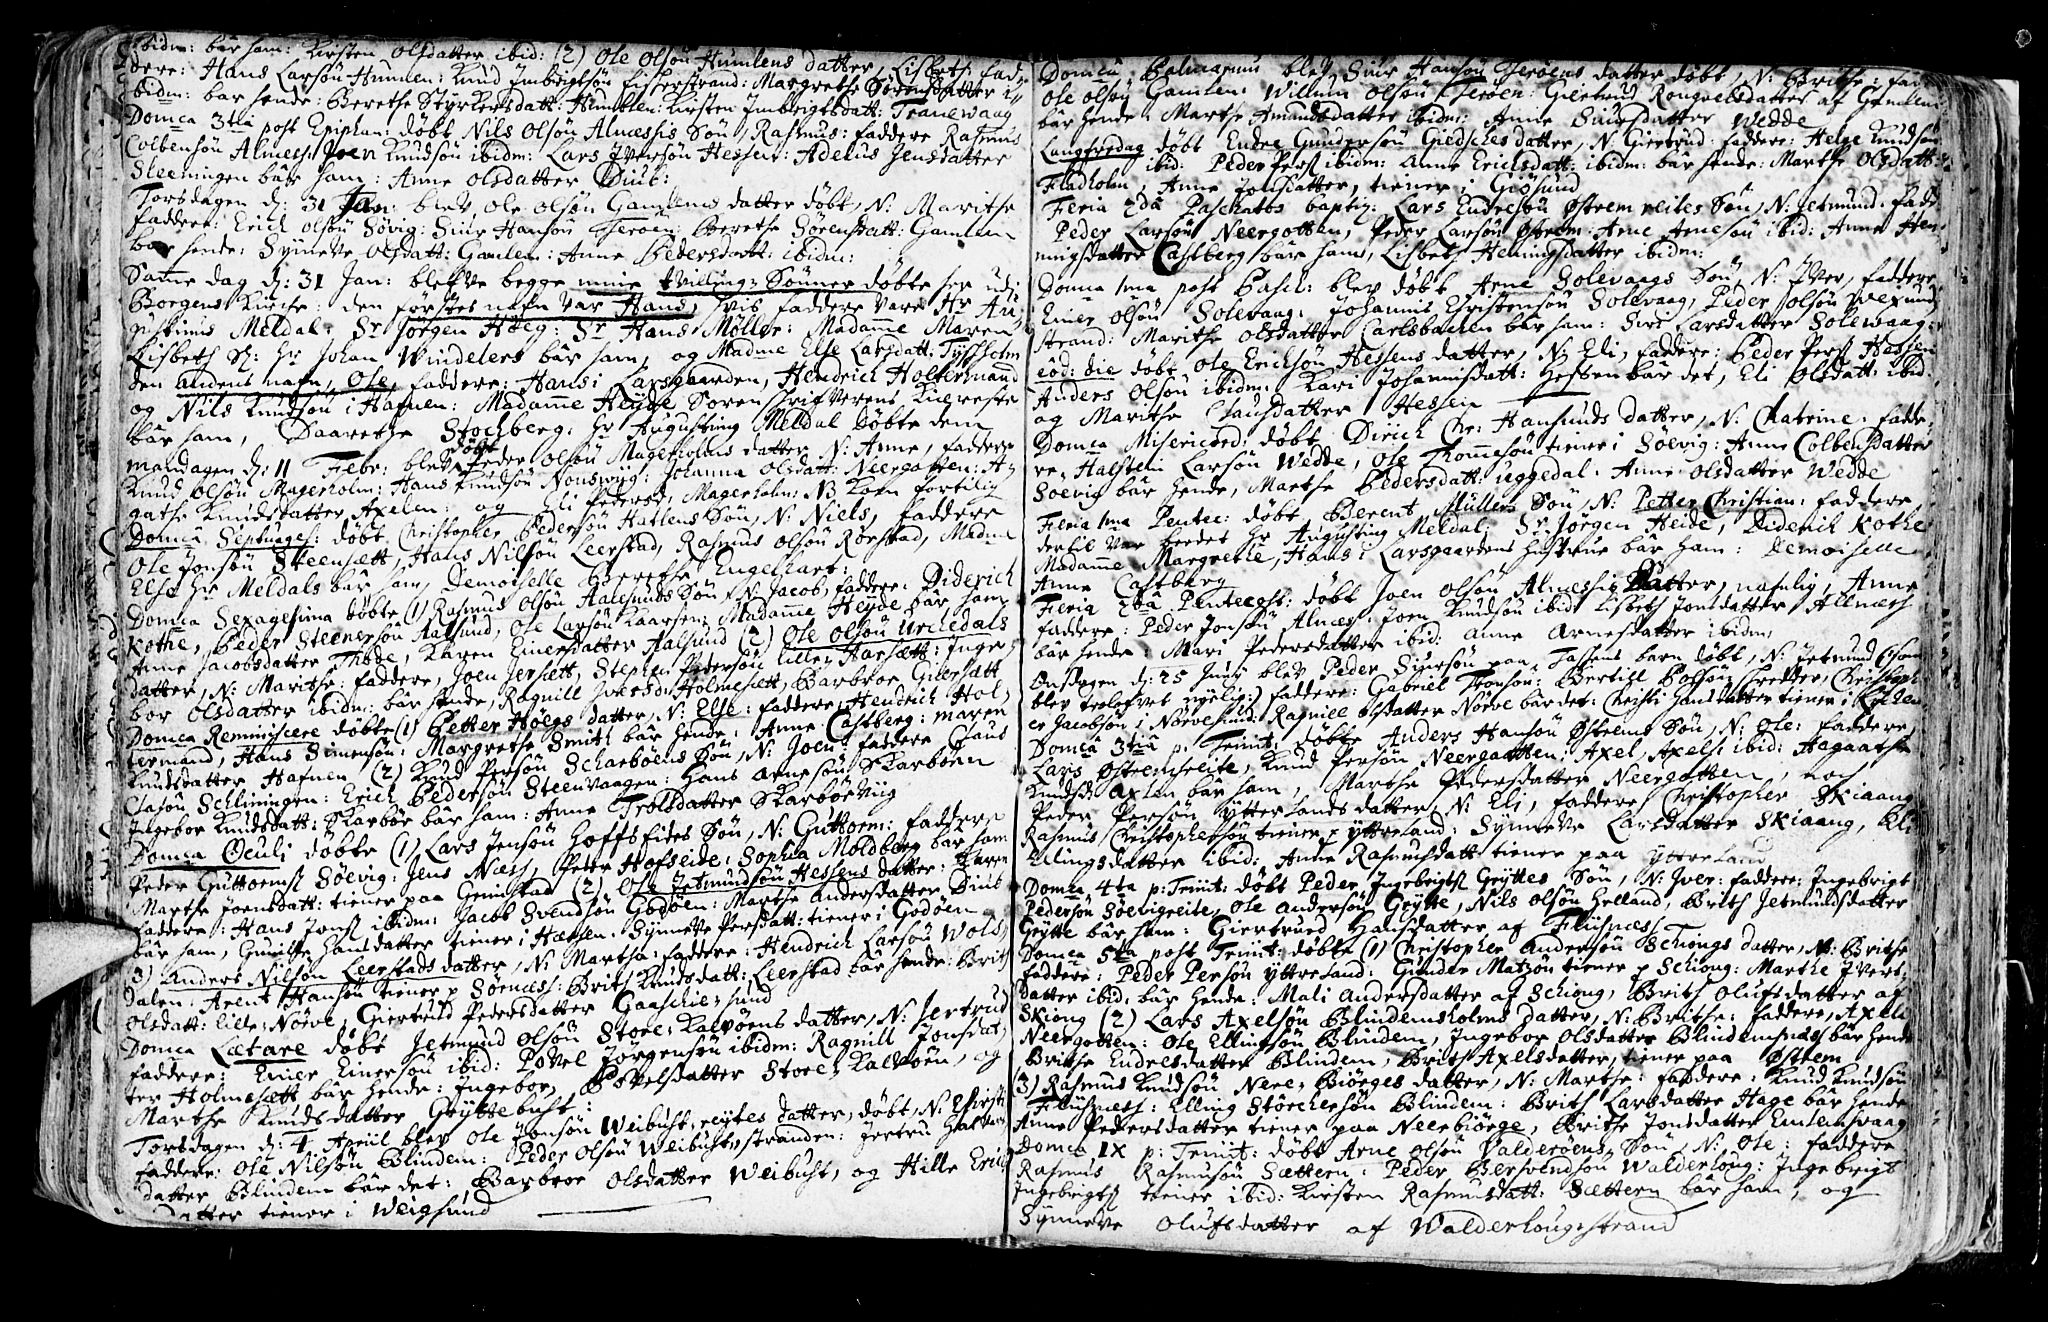 ibidm: bär ham: Kirsten Olsdatter ibid: (2) Ole Olsøn Humlens datter, Lisbeth: fad-
dere: Hans Larsøn Humlen: Knud Imbrigtsøn Fiskerstrand: Margrethe Sørensdatter i-
bidm: bar hende: Berethe Styrkersdatt: Humblen: Kirsten Imbrigtsdatt: Tranewaag
Domca 3tia post Epiphan: døbt Nils Olsøn Almessis Søn, Rasmus: faddere Rasmus
Colbensøn Almess: Joen Knudsøn ibidm: Lars Iversøn Hessen: Adelus Jensdatter
Sleeningen bär ham: Anne Olsdatter Duub:
Torsdagen d: 31 Jan: blev Ole Olsøn Gamlems datter døbt, N: Marithe
faddere: Erich Olsøn Søvig: Siur Hansøn Jerøen: Berethe Sørensdatt: Gamlem
bar hende: Synneve Olsdatt: Gamlem: Anne Pedersdatt: ibidm:
Same dag d: 31 Jan: blefve begge mine tvilling-Sønner døbte her udi
Borgens Kirche: den førstes nafn var Hans, hvis faddere vare Hr Au-
gustinus Meldal: Sr Jørgen Høeg: Sr Hans Møller: Madame Maren
Lisbeth Sl: hr Johan Windelers bär ham, og Madme Else Larsdatt: Tyssholm
den andens nafn, Ole, faddere: Hans i Larsgaarden, Hendrich Holtermand
og Nils Knudsøn i Hafnen: Madamme Heyde Soren Skrifverens Kiereste
bär ham, Daarethe Stochberg: Hr Augustinus Meldal Døbte dem
mandagen d: 11 Febr: blev døbt Peder Olsøn Magerholms datter N: Anne, faddere
Knud Olsøn Magerholm: Hans Knudsøn Nonswiig: Johanna Olsdatt: Neergotten: A-
gathe Knudsdatter Axelen: og Eli Pedersd: Magerholm: NB kom fortilig
Domca Septuages: døbt Christopher Pedersøn Hatlens Søn, N: Niels, faddere
Ole Jonsøn Steensætt, Hans Nilsøn Leerstad, Rasmus Olsøn Rørstad, Madme
Else Hr Meldals bär ham, Demoiselle Berrethe Engelhart:
Domca Sexagesima døbte (1) Rasmus Olsøn Aalesunds Søn, N: Jacob, faddere: Diderich
Kothe, Peder Steenersøn Aalsund, Ole Larsøn Kaarsem: Madamme Heyde bär ham
Anne Jacobsdatter Thode, Karen Einersdatter Aalsund (2) Ole Olsøn Urchedals
datter, N: Marithe: faddere, Joen Jersætt, Stephen Pedersøn lille-Harsætt: Inge-
bor Olsdatter ibidm: bär hende, Ragnill Iversd: Holmesætt, Barbroe Guersætt
Domca Reminiscere døbte (1) Petter Høegs datter, N: Else: faddere, Hendrich Hol-
termand, Hans Simensøn: Margrethe Smith bär hende: Anne Castberg: maren
Knudsdatter Hafnen (2) Knud Persøn Scharbøens Søn, N: Joen: faddere Claus
Clasøn Schliningen: Erich Pedersøn Steenvaagen: Hans Arnesøn Skarbøen
Ingebor Knudsdatt: Skarbør bär ham: Anne Trolsdatter Skarbøe Viig
Domca Oculi døbte (1) Lars Jensøn Hoffsfides Søn, N: Guttorm: faddere
Peder Guttormsl Søevig: Jens Næss, Peter Hofseide: Sophia Moldberg bär ham
Marthe Joensdatt: tiener paa Gemistad (2) Ole Jetmundsøn Hessens datter: Karen
faddere: Hans Jensl ibidm: Jacob Svendsøn Godøen: Marthe Andersdatter Duub
bär ham, Gunilhe Hansdatter tiener i Hessen: Synneve Persdatt: tiener i Godøen
3) Anders Nilsøn Leerstads datter, N: Marthe: faddere: Hendrich Larsøn Wols-
dalen: Arent Hansøn tiener p Sørnes: Brith Knudsdatt: Leerstad bär hende: Brith
Olsdatt: lille-Nørve, Giertrud Pedersdatter Gaaschie-sund
Domca Lætare døbt Jetmund Olsøn Store-Kalvøens datter, N: Jertrud
faddere: Einer Einersøn ibid: Povel Jørgensøn ibidm: Ragnill Jonsdat-
ter Holmesætt bär hende: Ingebor, Povelsdatter Store-Kalvøen, og
Marthe Knudsdatter Gryttebust:
Torsdagen d: 4 Apriil blev Ole Jonsøn Weibust-reytes datter, døbt, N: Christi
faddere: Ole Nilsøn Blindem: Peder Olsøn Weibust-stranden: Jertru Halvars
datter Blindem bär det: Barbroe Olsdatter Weibust, og Hille Erich
datter tiener i Weigsund
Domca Palmarum blev Siur Hansøn Jerøens datter døbt, N: Brithe: fadd
Ole Olsøn Gamlem: Willum Olsøn Jerøen: Giertrud Rongvelsdatter af Gamlem
bär hende: Marthe Amundsdatter ibidm: Anne Siursdatter Wedde
Langfredag døbt Endre Gundersøn Giedsches datter, N: Giertrud: faddere: Helge Knudsøn
ibid: Peder Persl ibidm: Anne Erichsdatt: ibidm: bär hende: Marthe Olsdatt:
Fladholm, Anne Jonsdatter, tiener i Giøsund
Feria 2da Paschatos baptiz: Lars Endresøn Østremreites Søn, N: Jetmund: fadd
Peder Larsøn Neergotten, Peder Larsøn Østrem: Arne Arnesøn ibid: Anne Hen-
ningsdatter Castberg bär ham, Lisbeth Heluigsdatter ibidm:
Domca 1ma post Pasch: blev døbt Arne Solevaags Søn, N: Iver, faddere
Einer Olsøn Solevaag: Johannis Christensøn Solevaag, Peder Olsøn Wexund
strand: Marithe Olsdatter Carlsbatten bär ham: Siri Larsdatter Solevaag:
eod: die døbt Ole Erichsøn Hessens datter, N: Eli, faddere: Peder Persl Hessen
Anders Olsøn ibidm: Kari Johannisdatt: Hessen bär det, Eli Olsdatt: ibid:
og Marithe Clausdatter Hessen
Domca Misericord: døbt Diirich Chr: Hansunds datter, N: Chatrine: fadde-
re, Halsten Larsøn Wedde, Ole Thomesøn tiener i Soevig: Anne Colbensdatter
Søevig bär hende, Marthe Pedersdatt: uggedal: Anne Olsdatter Wedde
Feria 1ma Pentec: døbt Berent Müllers Søn, N: Petter Christian: faddere
dertil var beedet Hr Augusting Meldal, Sr Jørgen Heide, Diderich Kothe
Madamme Margrethe, Hans i Larsgaardens hustrue bär ham: Demoiselle
Anne Castberg
Feria 2da Pentecost: døbt Joen Olsøn Almessis Datter, nafnlig, Anne
faddere: Peder Jonsøn Almess: Joen Knudsøn ibid: Lisbeth Jonsdatter Allmess
bär hende: Mari Pedersdatter ibid: Anne Arnesdatter ibidm:
Onsdagen d: 25 Juny blev Peder Siursøn paa Tassens barn døbt, N: Jetmund (som
blev trolofvet nyelig:) faddere: Gabriel Thronsøn: Bertill Polson Credder, Christoph-
er Jacobsøn i Nørvesund: Ragnill Olsdatter Nørve bär det: Christi Hansdatter tiener i Kolchen
Domca 3tia p: Trinit: døbte Anders Hansøn Østrems Søn, N: Ole: faddere
Lars Østremsreite, Knud Persøn Neergaatten: Axel Axelsl ibid: Aagaathe
Knudsd: Axlen bär ham, Marthe Pedersdatter Neergotten, noch
Peder Persøn Ytterlands datter, N: Eli, faddere Christopher Skiaang
Rasmus Christophersøn tiener p Yttreland: Synneve Larsdatter Skiaang, Eli
Ellingsdatter ibid: Anne Rasmusdatt tiener paa Ytterland
Domca 4ta p: Trinit: døbt Peder Ingebrigtsl Gryttes Søn, N: Iver: faddere: Ingebrigt
Pedersøn Søevigreite, Ole Andersøn Grytte, Nils Olsøn Helland, Brith Jetmundsdatter
Grytte bär ham: Giertrued Hansdatter af Fliisnes:
Domca 5ta post Trinit: døbte (1) Christopher Andersøn Schiongs datter, N: Brithe
faddere: Peder Persøn Yttreland: Gunder Matsøn tiener p Schiong: Marthe Ivers-
datter ibid: bär hende: Mali Andersdatter af Schiong, Brith Olufsdatter af
Skiong (2) Lars Axelsøn Blindemsholms datter, N: Brithe: faddere, Axel
Neergotten: Ole Ellingsøn Blindem, Ingebor Olsdatter Blindemsnæs bär hende
Brithe Endresdatter Blindem, Brith Axelsdatter, tiener paa Østrem
(3) Rasmus Knudsøn Nere-Biørges datter, N: Marthe: faddere: Knud Knudsøn
Fliisnes: Elling Størchersøn Blindem: Brith Larsdatter Hage bär hende
Anne Pedersdatter tiener paa Neerbiørge, Brithe Jonsdatter Emlemsvaag
Domca IX p: Trinit: døbt Arne Olsøn Valderøens Søn, N: Ole: faddere
Rasmus Rasmusøn Sættern: Peder Bersvendsøn Walderhoug: Ingebrigt
Ingebrigtsl tiener ibid: Kirsten Rasmusdatt: Sættern bär ham, og
Synneve Olufsdatter af Walderhougstrand